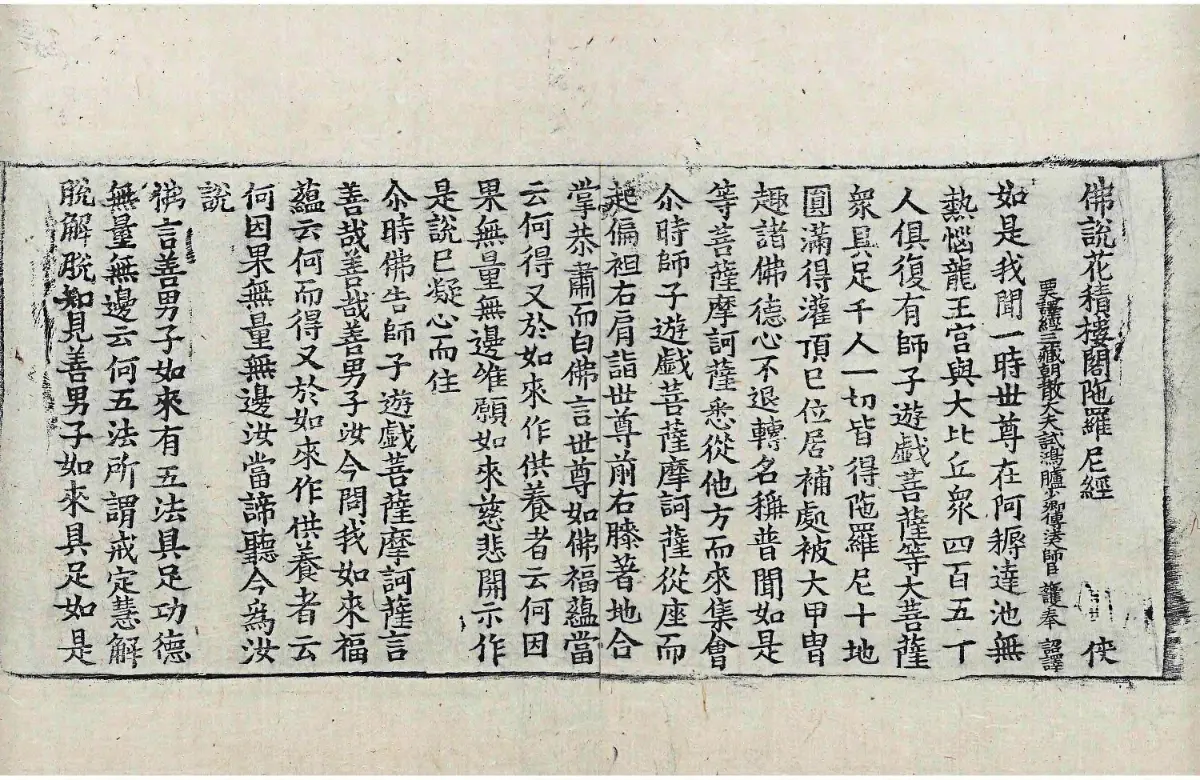 佛說花積樓閣陁羅尼經 俠
譯經三藏朝散大夫試鴻臚少卿傳法大師臣 護奉 詔譯
如是我聞一時世尊在阿耨達池無
熱惱龍王宮與大比丘衆四百五十
人俱復有師子遊戲菩薩等大菩薩
衆具足千人一切皆得陁羅尼十地
圓滿得灌頂已位居補處被大甲冑
趣諸佛德心不退轉名稱普聞如是
等菩薩摩訶薩悉從他方而來集會
尒時師子遊戲菩薩摩訶薩從座而
起偏袒右肩詣世尊前右膝著地合
掌恭肅而白佛言世尊如佛福蘊當
云何得又於如來作供養者云何因
果無量無邊惟願如來慈悲開示作
是說已凝心而住
尒時佛告師子遊戲菩薩摩訶薩言
善哉善哉善男子汝今問我如來福
蘊云何而得又於如來作供養者云
何因果無量無邊汝當諦聽今爲汝
說
佛言善男子如來有五法具足功德
無量無邊云何五法所謂戒定慧解
脫解脫知見善男子如來具足如是